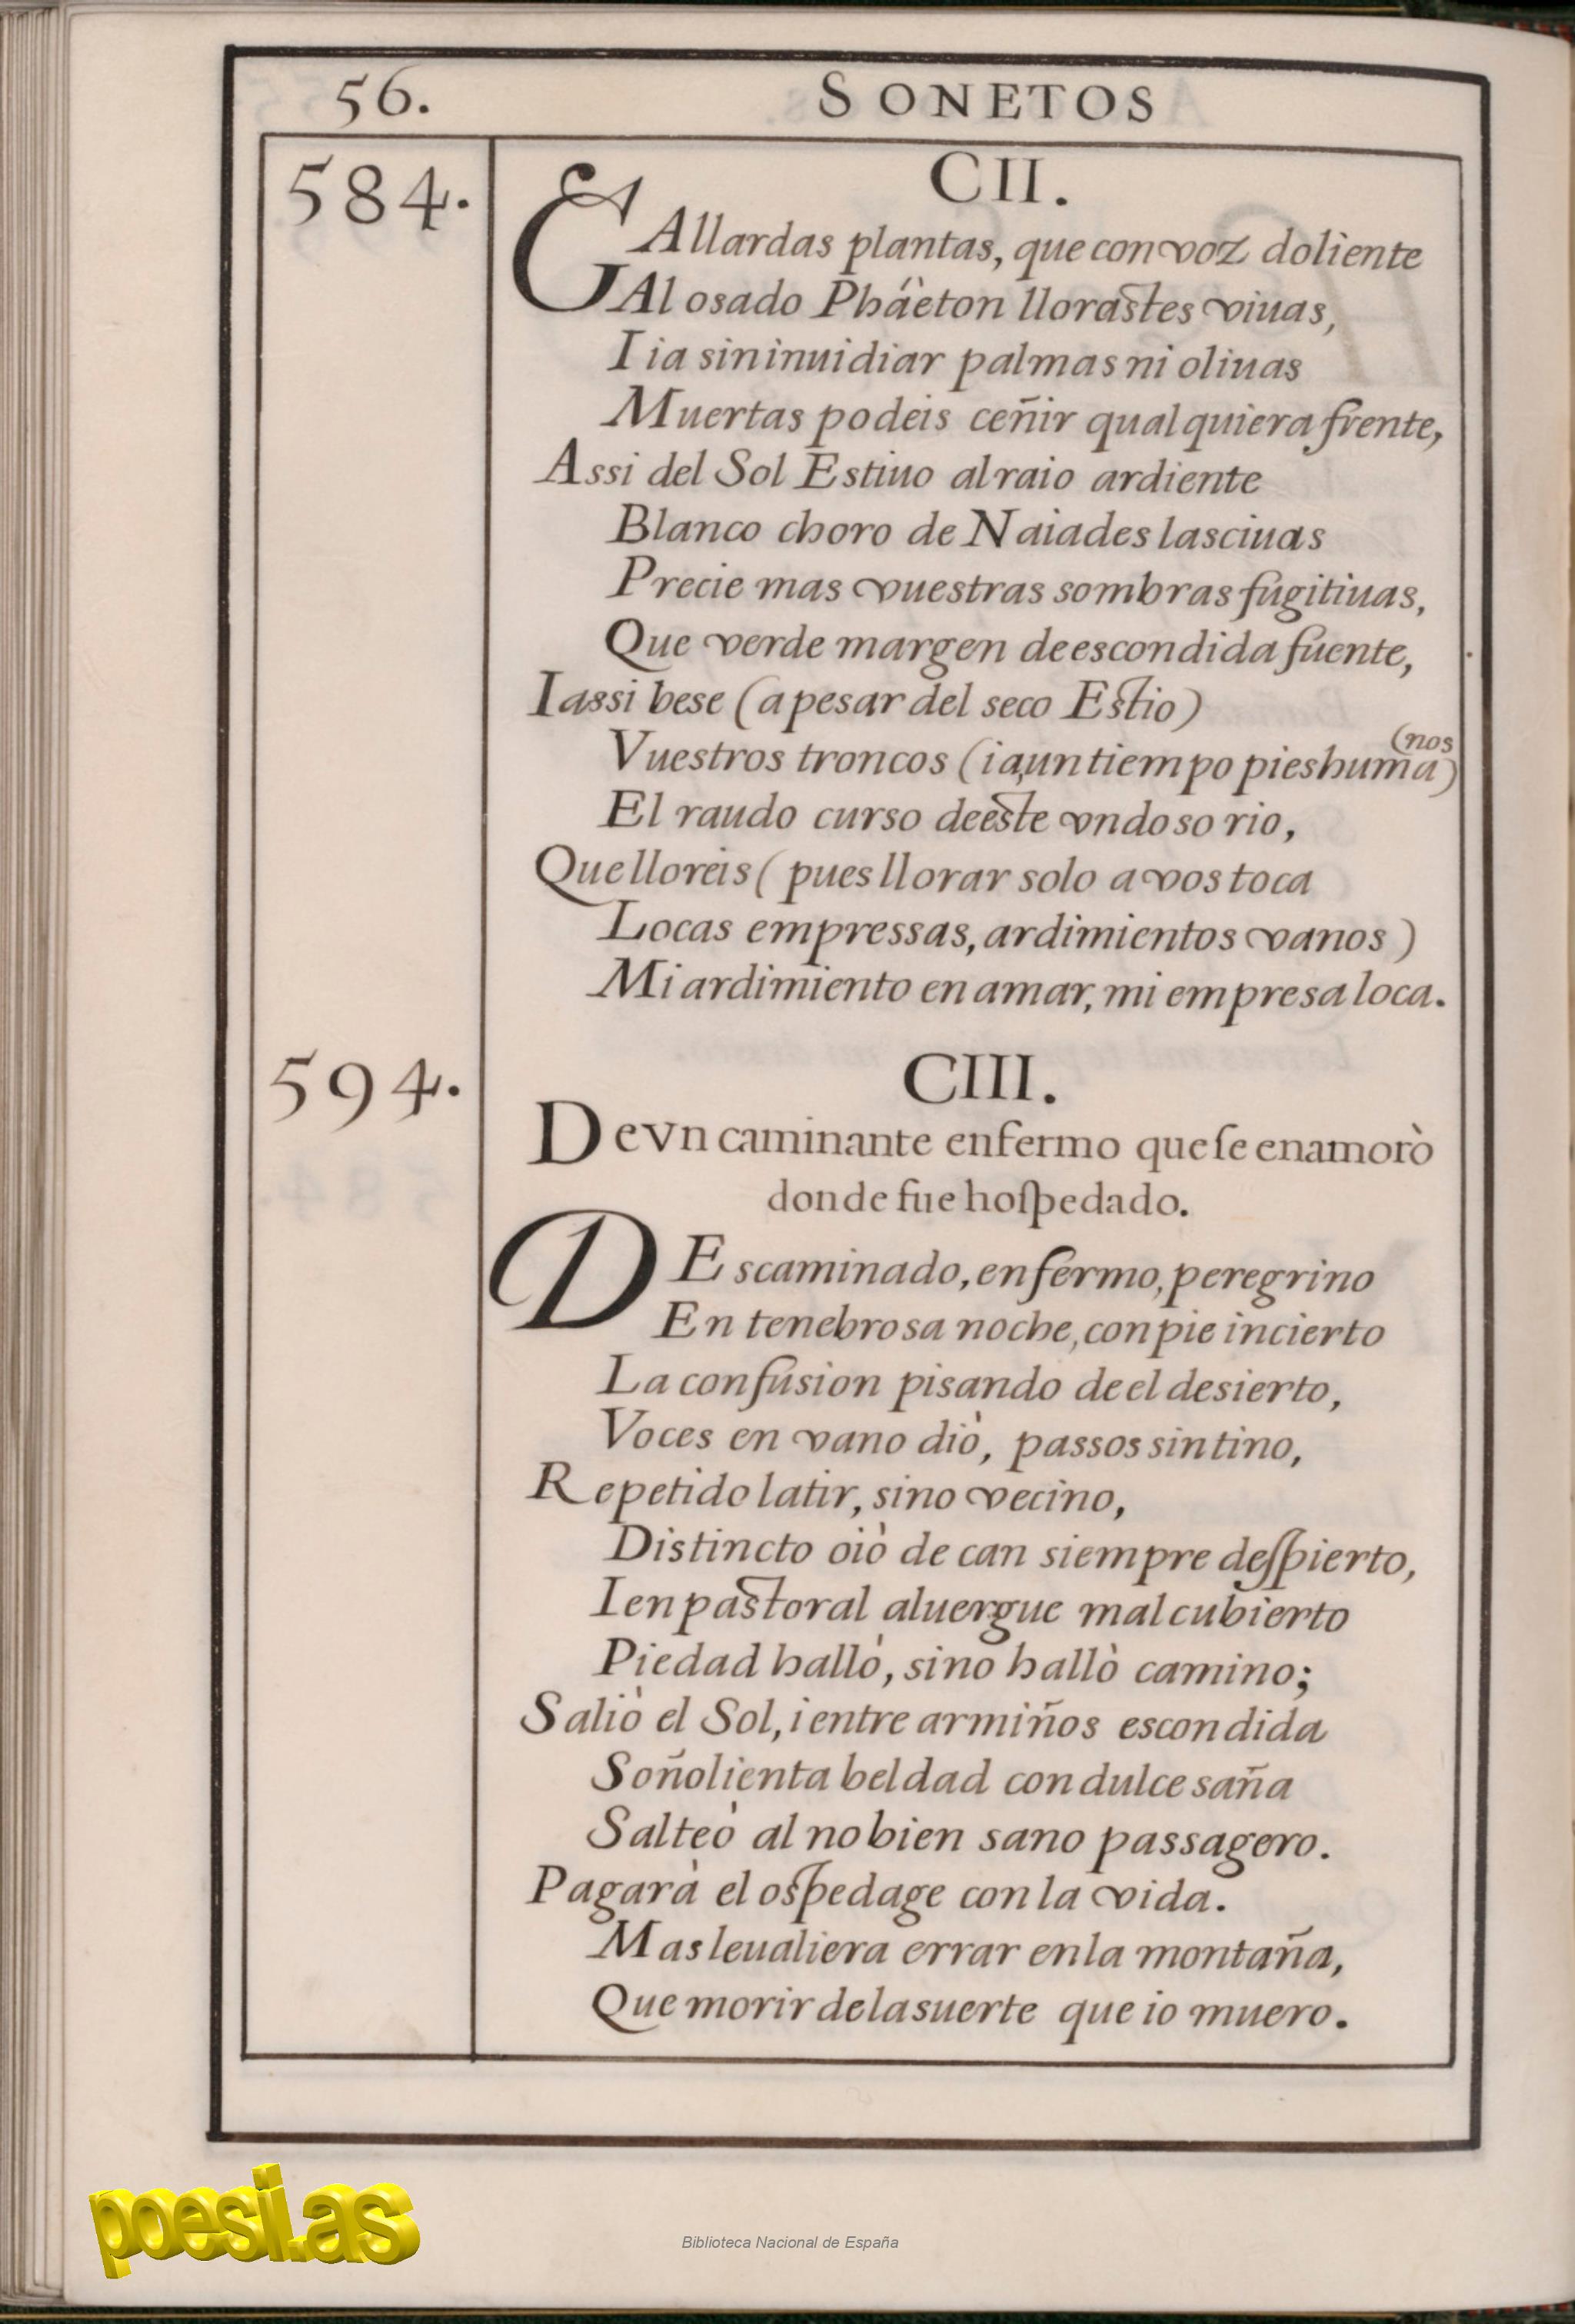 56. SONETOS
584. CII.
GAllardas plantas, que con voz doliente
Al osado Phàeton llorastes viuas,
I ia sin inuidiar palmas ni oliuas
Muertas podeis ceñir qualquiera frente,
Assi del Sol Estiuo al raio ardiente
Blanco choro de Naiades lasciuas
Precie mas vuestras sombras fugitiuas,
Que verde margen de escondida fuente,
I assi bese (a pesar del seco Estio)
Vuestros troncos (ia un tiempo pies huma)
(nos
El raudo curso de este vndoso rio,
Que lloreis (pues llorar solo a vos toca
Locas empressas, ardimientos vanos)
Mi ardimiento en amar, mi empresa loca.
594. CIII.
De vn caminante enfermo que se enamorò
donde fue hospedado.
DEscaminado, enfermo, peregrino
En tenebrosa noche, con pie incierto
La confusion pisando de el desierto,
Voces en vano diò, passos sin tino,
Repetido latir, sino vecino,
Distincto oiò de can siempre despierto,
I en pastoral aluergue mal cubierto
Piedad hallò, sino hallò camino;
Saliò el Sol, i entre armiños escondida
Soñolienta beldad con dulce saña
Salteò al no bien sano passagero.
Pagarà el ospedage con la vida.
Mas le ualiera errar en la montaña,
Que morir de la suerte que io muero.
poesi.as
Biblioteca Nacional de España